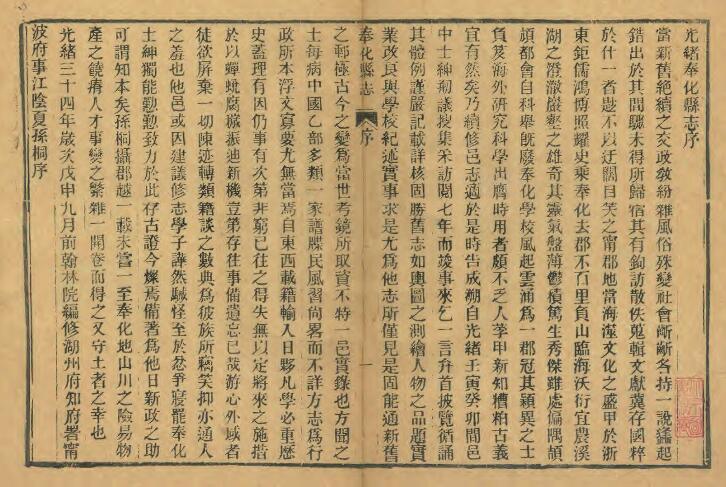 光緒奉化縣志序
當新舊絶續之交政敎紛雜風俗殊變社會斷斷各持一說鑫起
錯出於其間驟未得所歸宿其有鉤訪散佚蒐輯文獻冀存國粹
於什一者尠不以迂闊目笑之甯郡地當海濱文化之盛甲於浙
東鉅儒鴻博照耀史乘奉化去郡不百里負山臨海沃衍宜農溪
湖之澄澈巖壑之雄奇其靈氣盤薄鬱積篤生秀傑雖處偏隅頡
頏都會自科舉旣廢奉化學校風起雲涌爲一郡冠其穎異之士
負笈海外硏究科學出膺時用者頗不乏人芓甲新知糟粕古義
宜有然矣乃續修邑志適於是時告成溯自光緒壬寅癸卯間邑
中士紳剏議搜集采訪閱七年而竣事來乞一言弁首披覽循誦
其體例謹嚴記載詳核固勝舊志如輿圖之測繪人物之品題實
業改良與學校紀述實事求是尤爲他志所僅見是固能通新舊
奉化縣志
序
一
之郵極古今之變爲當世考鏡所取資不特一邑實錄也方聞之
士每病中國乙部多類一家譜牒民風習尙畧而不詳方志爲行
政所本浮文寡要尤無當焉自東西載籍輸入日夥凡學必重歷
史蓋理有因仍事有次第非窮已往之得失無以定將來之施措
於以蟬蛻腐穢振迪新機豈第存往事備遺忘已哉游心外域者
徒欲屏棄一切陳迹轉類籍談之數典爲彼族所竊笑抑亦通人
之羞也他邑或因建議修志學子譁然駴怪至於忿爭寢罷奉化
士紳獨能懃懃致力於此存古證今燦焉備著爲他日新政之助
可謂知本矣孫桐攝郡越一載未嘗一至奉化地山川之險易物
產之饒瘠人才事變之繁雜一開卷而得之又守土者之幸也
光緒三十四年歲次戊申九月前翰林院編修湖州府知府署甯
波府事江陰夏孫桐序